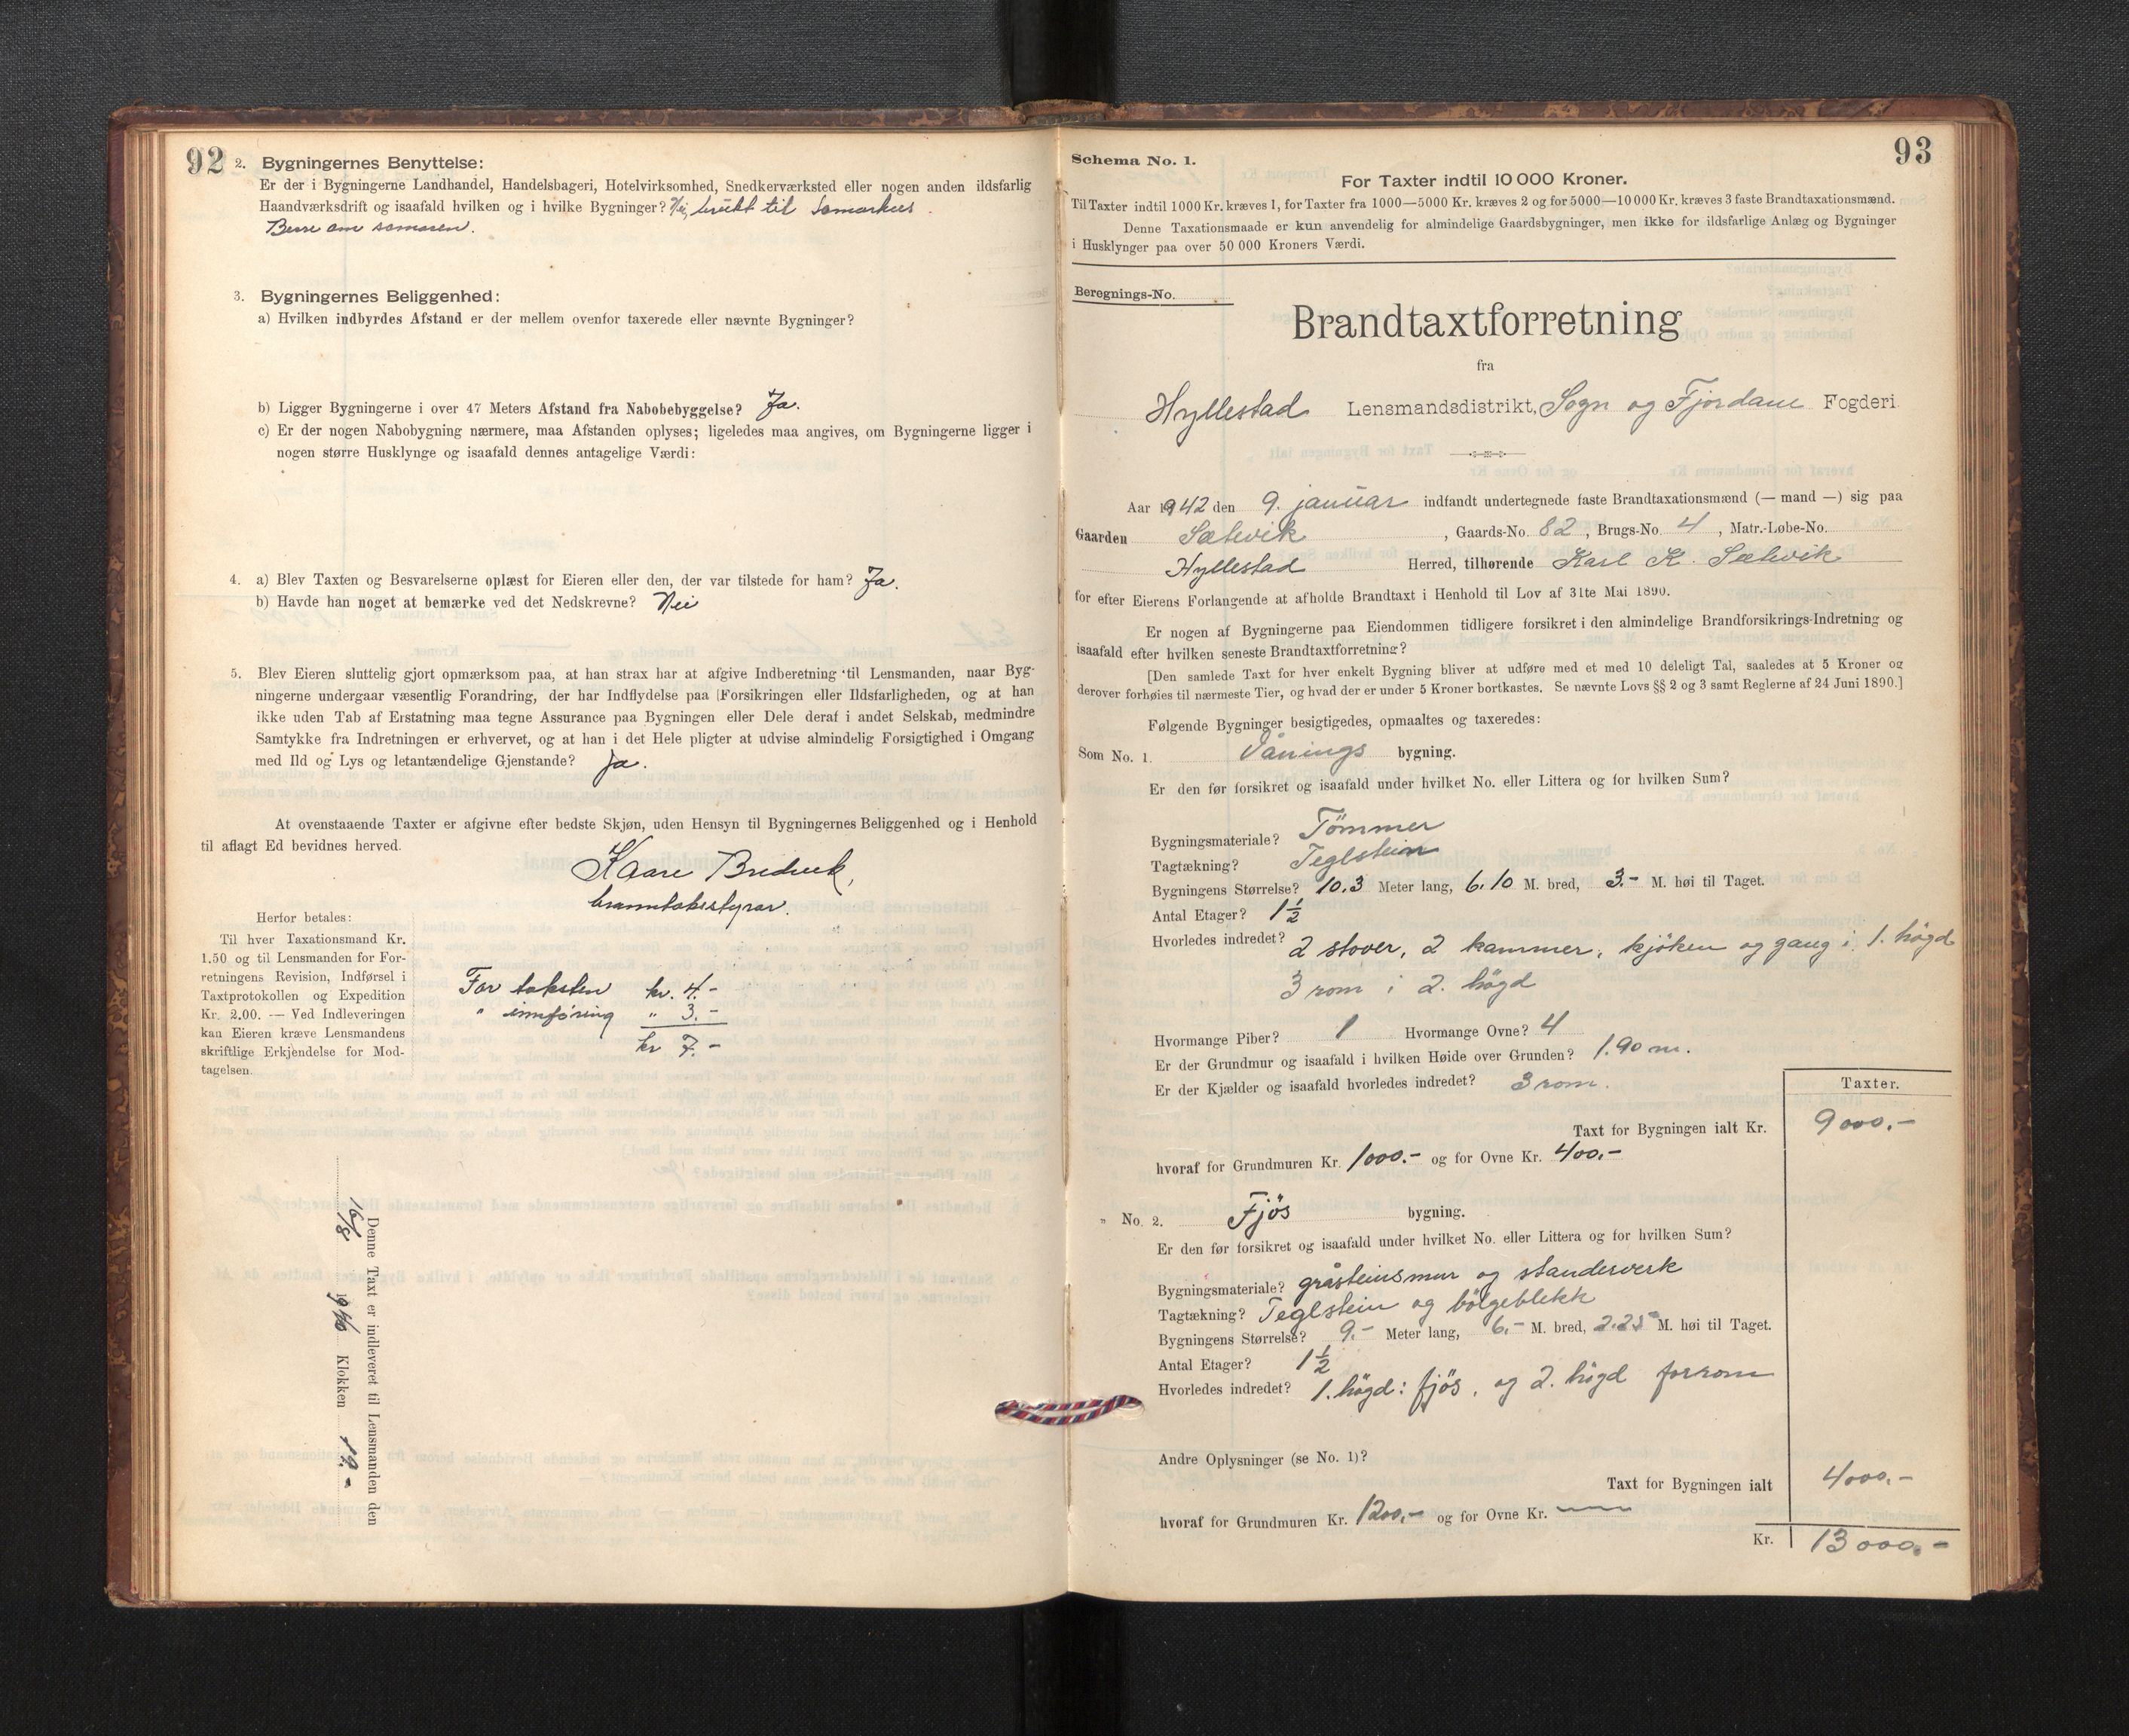 92
2. Bygningernes Benyttelse:
Er der i Bygningerne Landhandel, Handelsbageri, Hotelvirksomhed, Snedkerværksted eller nogen anden ildsfarlig
Haandværksdrift og isaafald hvilken og i hvilke Bygninger? Nei, brukt til somarhus.
Berre om somaren.
3. Bygningernes Beliggenhed:
a) Hvilken indbyrdes Afstand er der mellem ovenfor taxerede eller nævnte Bygninger?
b) Ligger Bygningerne i over 47 Meters Afstand fra Nabobebyggelse? Ja.
c) Er der nogen Nabobygning nærmere, maa Afstanden oplyses; ligeledes maa angives, om Bygningerne ligger i
nogen større Husklynge og isaafald dennes antagelige Værdi:
4. a) Blev Taxten og Besvarelserne oplæst for Eieren eller den, der var tilstede for ham? Ja.
b) Havde han noget at bemærke ved det Nedskrevne? Nei
5. Blev Eieren sluttelig gjort opmærksom paa, at han strax har at afgive Indberetning til Lensmanden, naar Byg-
ningerne undergaar væsentlig Forandring, der har Indflydelse paa Forsikringen eller Ildsfarligheden, og at han
ikke uden Tab af Erstatning maa tegne Assurance paa Bygningen eller Dele deraf i andet Selskab, medmindre
Samtykke fra Indretningen er erhvervet, og at han i det Hele pligter at udvise almindelig Forsigtighed i Omgang
med Ild og Lys og letantændelige Gjenstande? Ja.
At ovenstaaende Taxter er afgivne efter bedste Skjøn, uden Hensyn til Bygningernes Beliggenhed og i Henhold
til aflagt Ed bevidnes herved.
Kaare Bredvik,
branntakststyrar.
Herfor betales:
Til hver Taxationsmand Kr.
1.50 og til Lensmanden for For-
retningens Revision, Indførsel i
Taxtprotokollen og Expedition
Kr. 2.00. — Ved Indleveringen
kan Eieren kræve Lensmandens
skriftlige Erkjendelse for Mod-
tagelsen.
For taksten kr. 4.-
" innføring " 3.-
kr 7.-
Denne Taxt er indleveret til Lensmanden den
16/8 1940 Klokken 19.-
93
Schema No. 1.
For Taxter indtil 10 000 Kroner.
Til Taxter indtil 1000 Kr. kræves 1, for Taxter fra 1000—5000 Kr. kræves 2 og for 5000—10 000 Kr. kræves 3 faste Brandtaxationsmænd.
Denne Taxationsmaade er kun anvendelig for almindelige Gaardsbygninger, men ikke for ildsfarlige Anlæg og Bygninger
i Husklynger paa over 50 000 Kroners Værdi.
Beregnings-No.
Brandtaxtforretning
fra
Hyllestad Lensmandsdistrikt, Sogn og Fjordane Fogderi
Aar 1942 den 9. januar indfandt undertegnede faste Brandtaxationsmænd (— mand —) sig paa
Gaarden Sætevik, Gaards-No. 82, Brugs-No. 4, Matr.-Løbe-No.
Hyllestad Herred, tilhørende Karl K. Sætevik
for efter Eierens Forlangende at afholde Brandtaxt i Henhold til Lov af 31te Mai 1890.
Er nogen af Bygningerne paa Eiendommen tidligere forsikret i den almindelige Brandforsikrings-Indretning og
isaafald efter hvilken seneste Brandtaxtforretning?
[Den samlede Taxt for hver enkelt Bygning bliver at udføre med et med 10 deleligt Tal, saaledes at 5 Kroner og
derover forhøies til nærmeste Tier, og hvad der er under 5 Kroner bortkastes. Se nævnte Lovs §§ 2 og 3 samt Reglerne af 24 Juni 1890.]
Følgende Bygninger besigtigedes, opmaaltes og taxeredes:
Som No. 1. Vånings bygning.
Er den før forsikret og isaafald under hvilket No. eller Littera og for hvilken Sum?
Bygningsmateriale? Tömmer
Tagtækning? Teglstein
Bygningens Størrelse? 10.3 Meter lang, 6.10 M. bred, 3.- M. høi til Taget.
Antal Etager? 1 1/2
Hvorledes indredet? 2 stover, 2 kammer, kjöken og gang i 1. högd
3 rom i 2. högd
Hvormange Piber? 1 Hvormange Ovne? 4
Er der Grundmur og isaafald i hvilken Høide over Grunden? 1.90 m.
Er der Kjælder og isaafald hvorledes indredet? 3 rom.
Taxter.
Taxt for Bygningen ialt Kr. 9000.-
hvoraf for Grundmuren Kr. 1000.- og for Ovne Kr. 400.-
" No. 2. Fjös bygning.
Er den før forsikret og isaafald under hvilket No. eller Littera og for hvilken Sum?
Bygningsmateriale? gråsteinsmur og standerverk
Tagtækning? Teglstein og bölgeblekk
Bygningens Størrelse? 9.- Meter lang, 6.- M. bred, 2.25 M. høi til Taget.
Antal Etager? 1 1/2
Hvorledes indredet? 1. högd: fjös, og 2. högd forrom
Andre Oplysninger (se No. 1)?
Taxt for Bygningen ialt 4000.-
hvoraf for Grundmuren Kr. 1200,- og for Ovne Kr. —
Kr. 13000.-